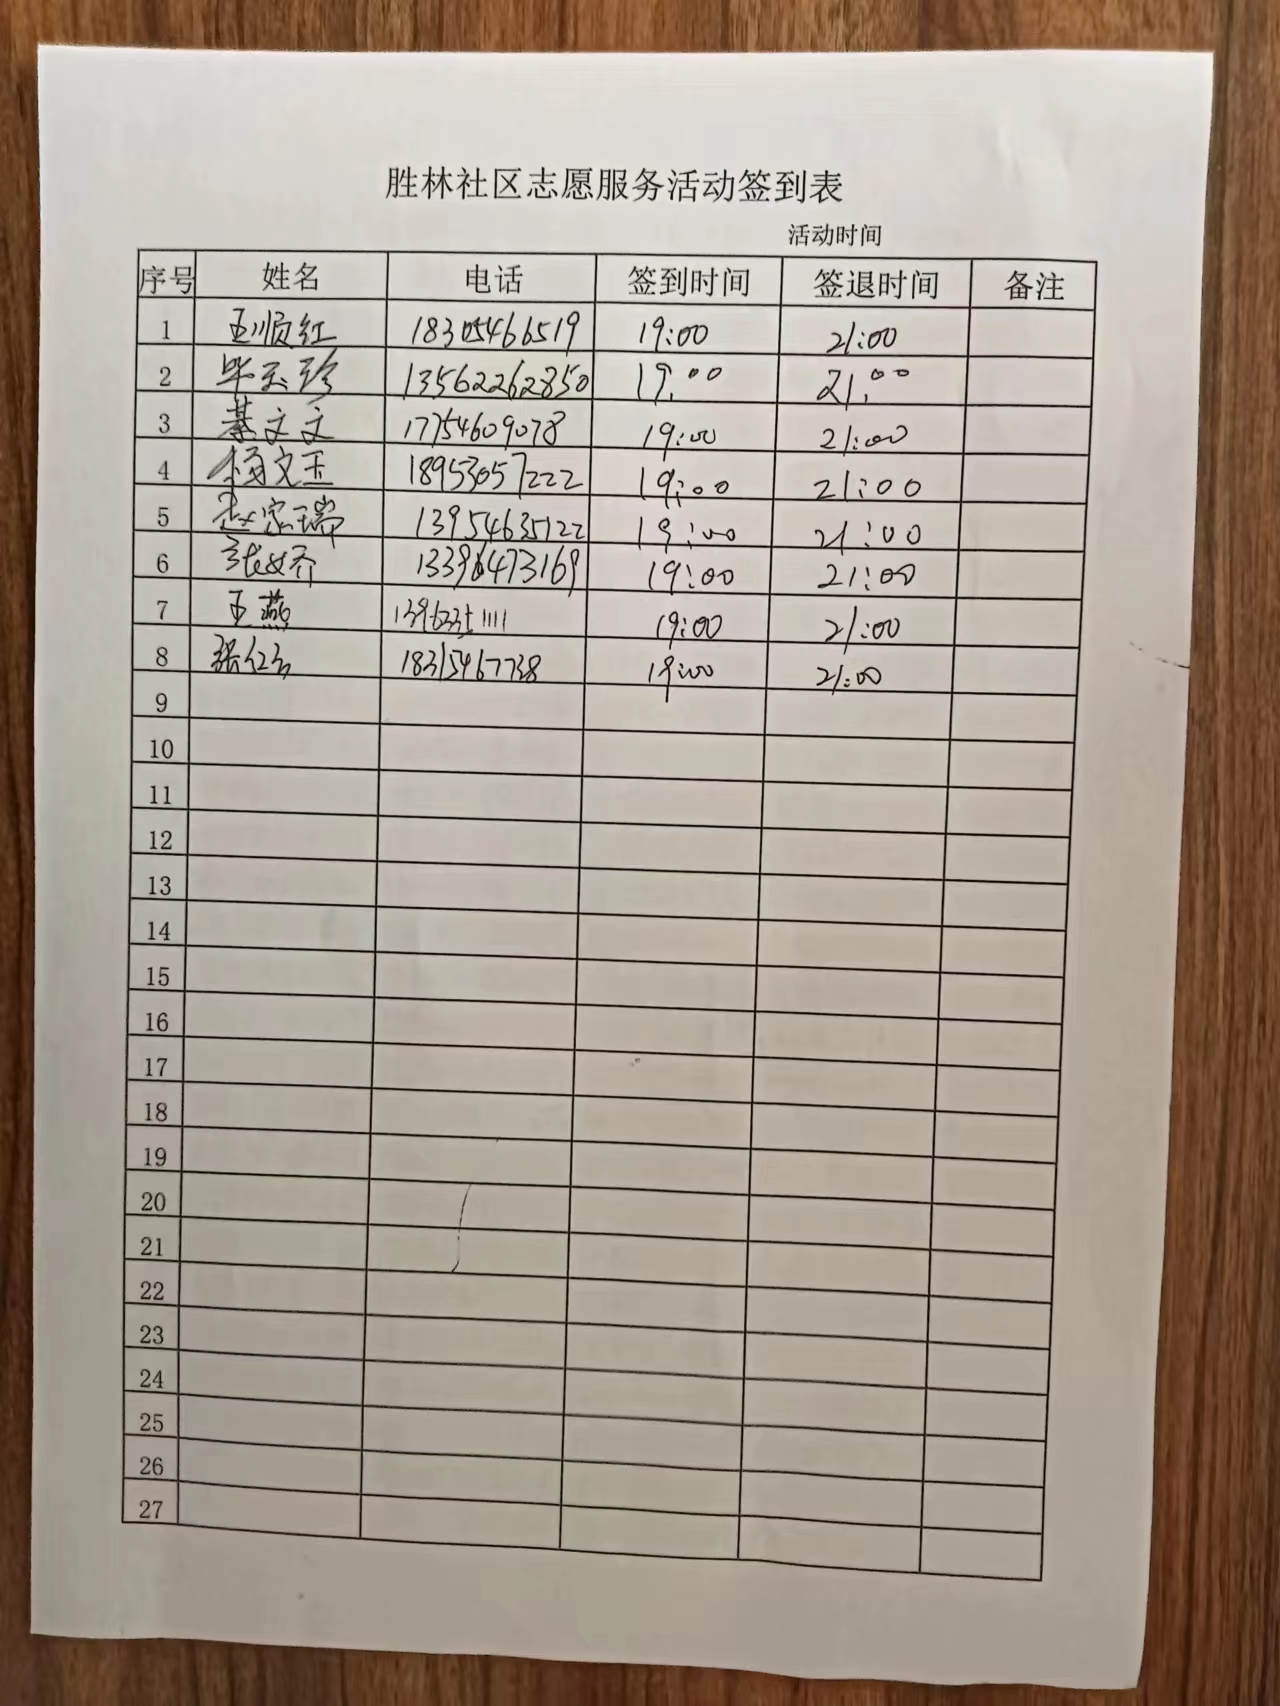 胜林社区志愿服务活动签到表
活动时间
序号 姓名 电话 签到时间 签退时间 备注
1 王顺红 18305466519 19:00 21:00
2 毕玉珍 13562262850 19:00 21:00
3 綦文文 17754609078 19:00 21:00
4 杨文玉 18953057222 19:00 21:00
5 赵家瑞 13954635122 19:00 21:00
6 张姣乔 13396473169 19:00 21:00
7 王燕 19:00 21:00
8 18315467738 19:00 21:00
9
10
11
12
13
14
15
16
17
18
19
20
21
22
23
24
25
26
27